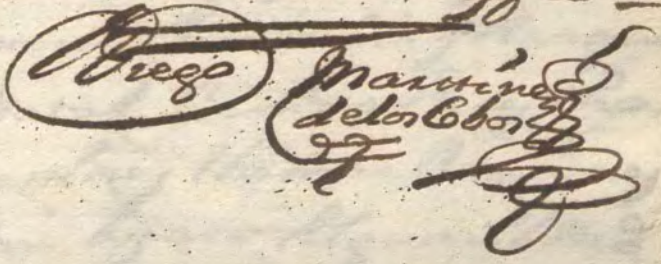 Diego Martinez
de los Cobos